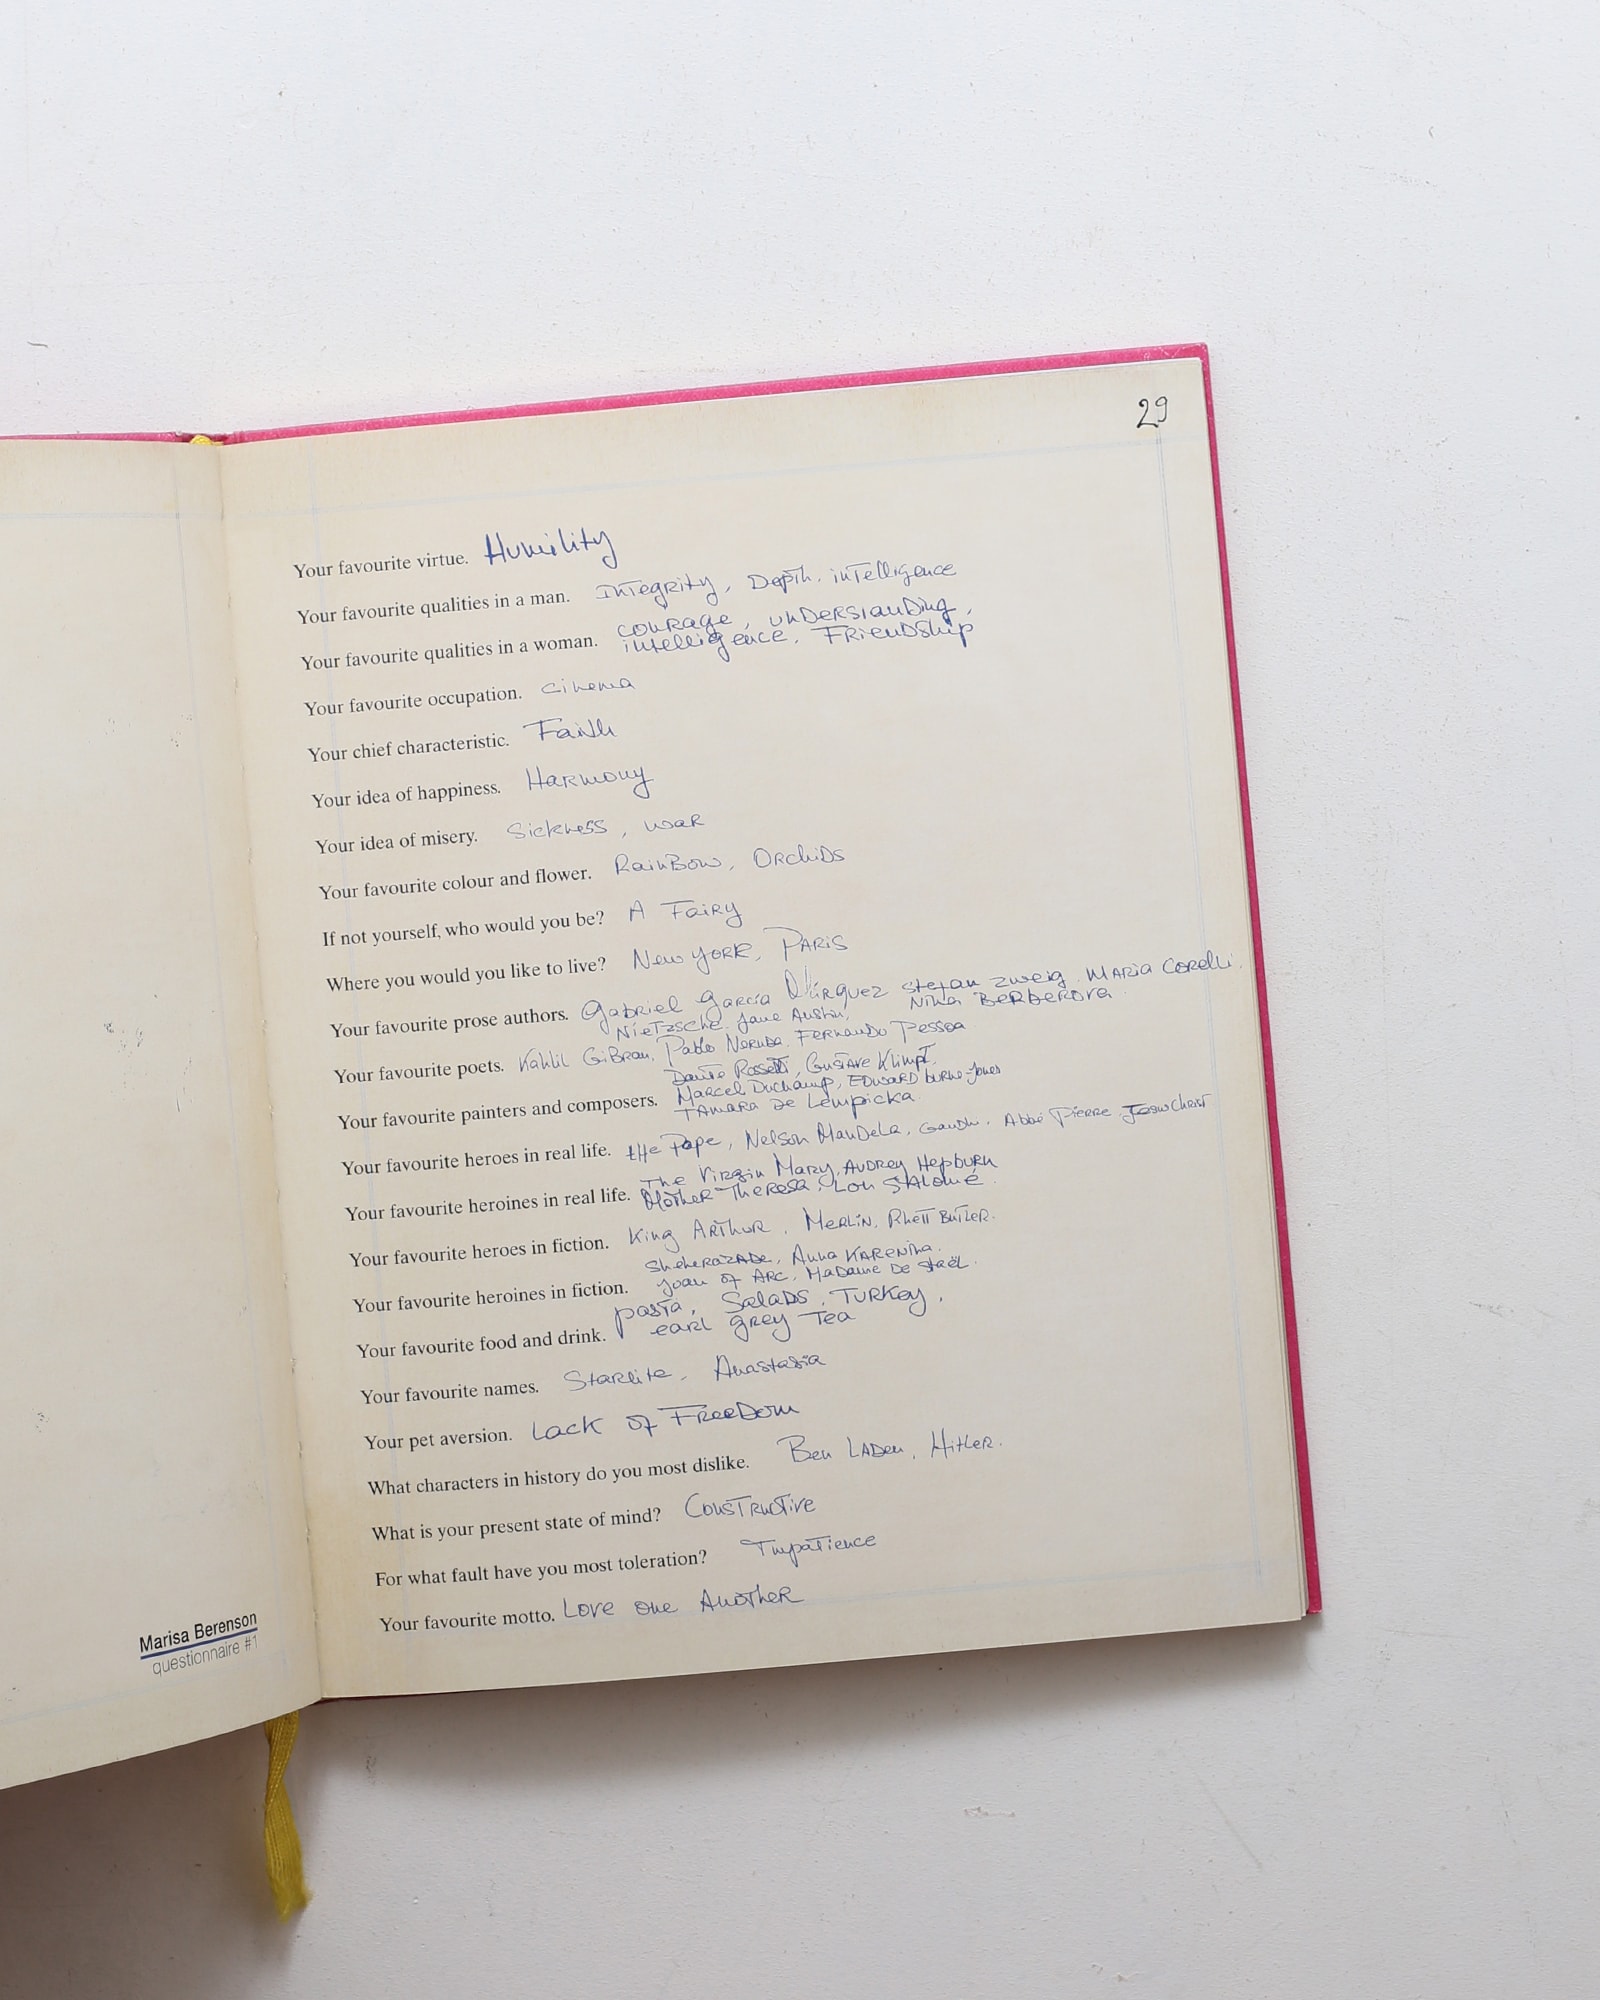 29
Your favourite virtue. Humility
Your favourite qualities in a man. Integrity, Depth, intelligence
Your favourite qualities in a woman. courage, understanding,
intelligence, Friendship
Your favourite occupation. cinema
Your chief characteristic. Faith
Your idea of happiness. Harmony
Your idea of misery. Sickness, war
Your favourite colour and flower. RainBow, Orchids
If not yourself, who would you be? A Fairy
Where you would you like to live? New York, Paris
Your favourite prose authors. Gabriel Garcia Márquez Stefan Zweig, Maria Corelli,
Nietzsche, Jane Austin, Nina Berberova.
Your favourite poets. Kahlil Gibran, Pablo Neruda, Fernando Pessoa
Your favourite painters and composers. Dante Rossetti, Gustave Klimpt.
Marcel Duchamp, Edward burne-Jones
Tamara De Lempicka.
Your favourite heroes in real life. the Pope, Nelson Mandela, Gandhi, Abbé Pierre, Jesus Christ
Your favourite heroines in real life. The Virgin Mary, Audrey Hepburn
Mother Theresa, Lou Salomé.
Your favourite heroes in fiction. King Arthur, Merlin, Rhett Butler.
Your favourite heroines in fiction. Sheherazade, Anna Karenina.
Joan of Arc, Madame De Staël.
Your favourite food and drink. pasta, Salads, Turkey,
earl grey Tea
Your favourite names. Starlite, Anastasia
Your pet aversion. Lack of Freedom
What characters in history do you most dislike. Ben Laden, Hitler.
What is your present state of mind? Constructive
For what fault have you most toleration? Impatience
Your favourite motto. Love one Another
Marisa Berenson
questionnaire #1